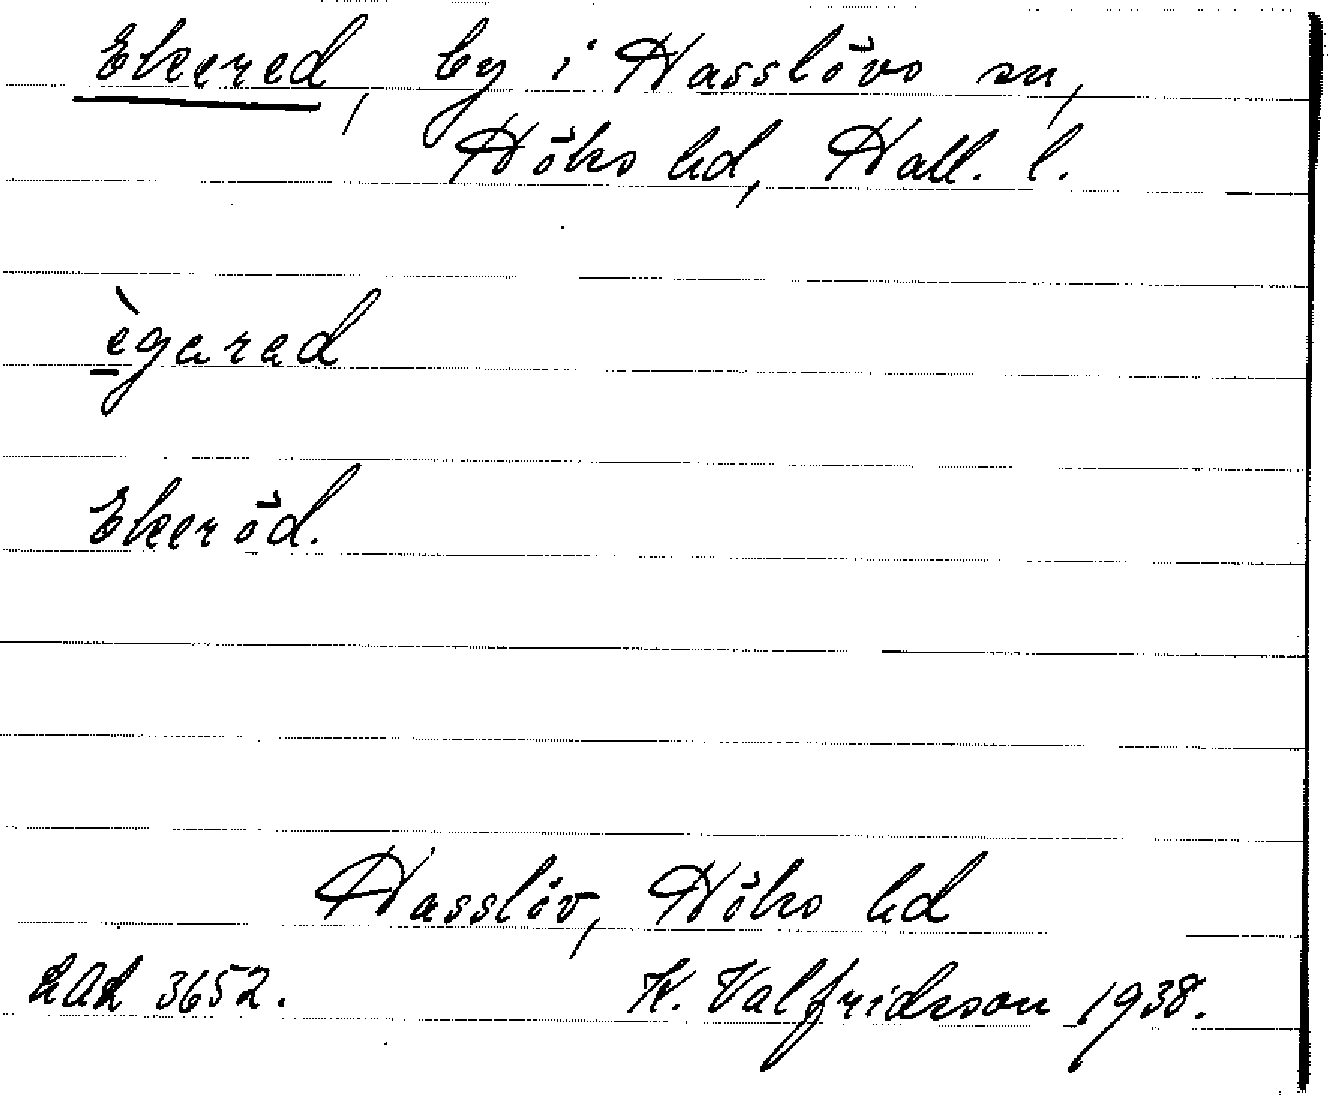 Ekered, by i Hasslövs sn,
Höks hd, Hall. l.
ègarad
Ekeröd.
Hasslöv, Höks hd
LAL 3652. K. Valfridsson 1938.